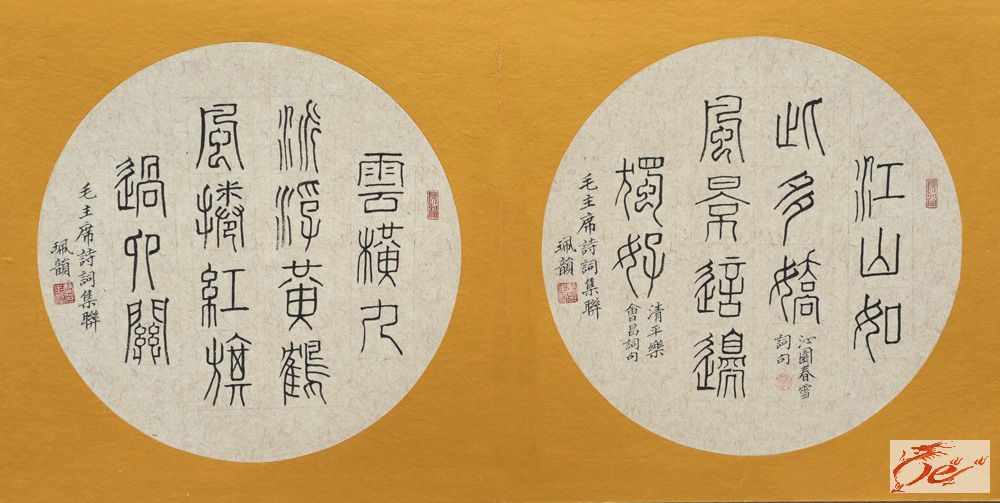 江山如
此多嬌
沁園春雪
詞句
風景這邊
獨好
清平樂
會昌詞句
毛主席詩詞集聯
珮韻
雲橫九
派浮黃鶴
風捲紅旗
過大關
毛主席詩詞集聯
珮韻